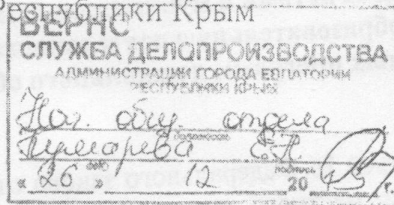 Республики Крым
ВЕРНО
СЛУЖБА ДЕЛОПРОИЗВОДСТВА
АДМИНИСТРАЦИИ ГОРОДА ЕВПАТОРИИ
РЕСПУБЛИКИ КРЫМ
Нач. общ. отдела
должность
Е.Н.
ФИО подпись
« 26 » 12 20 15 г.